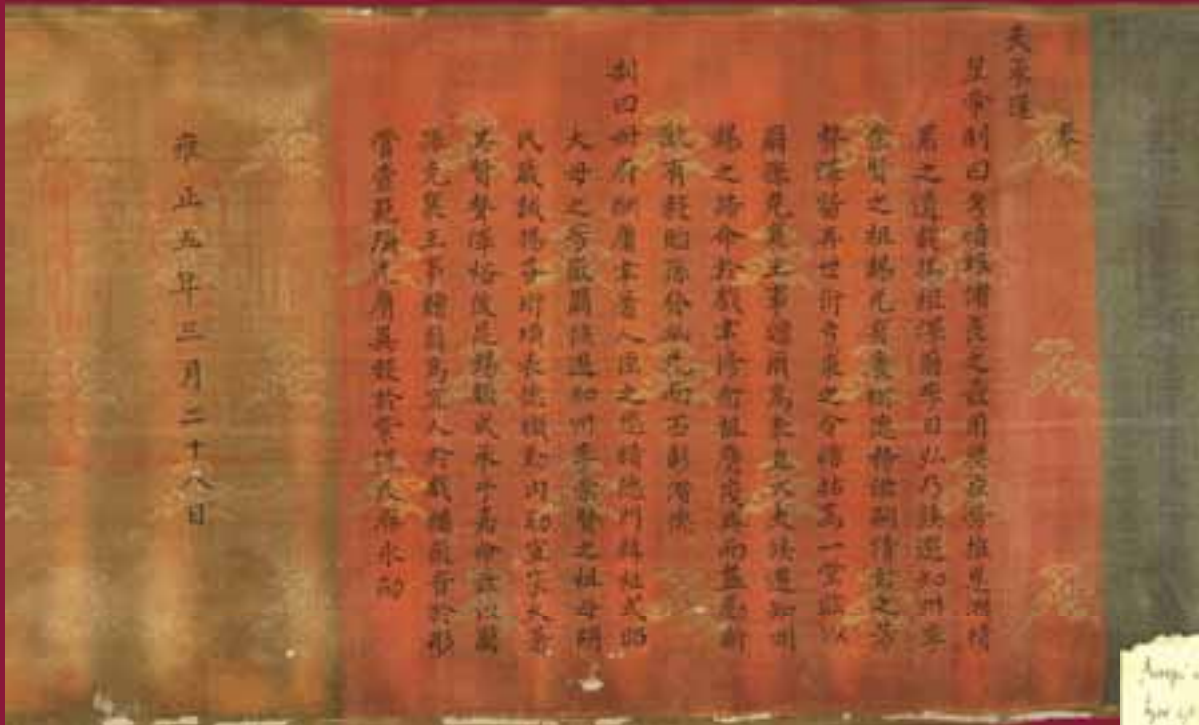 奉
天承運
皇帝制曰考績報循良之最用獎臣勞推恩溯積
累之遺載揚祖澤爾李日弘乃候選知州李
賢之祖錫光有慶樹德務滋嗣清白之芳
聲澤留再世衍弓裘之令緒祜篤一堂茲以
爾孫克襄王事贈爾為奉直大夫候選知州
錫之誥命於戲聿修念祖膺茂典而益勵新
猷有穀貽孫發幽光而丕彰潛德
制曰冊府酬庸聿著人臣之懋績德門輯祉式昭
大母之芳徽爾候選知州李賢之祖母
氏箴誡揚芬珩璜表德職勤內助宜家久著
其賢聲澤裕後昆錫類式承乎嘉命茲以爾
孫克襄王事贈爾為宜人於戲播徽音於彤
管壼範彌光膺異數於紫泥天庥永劭
雍正五年三月二十八日